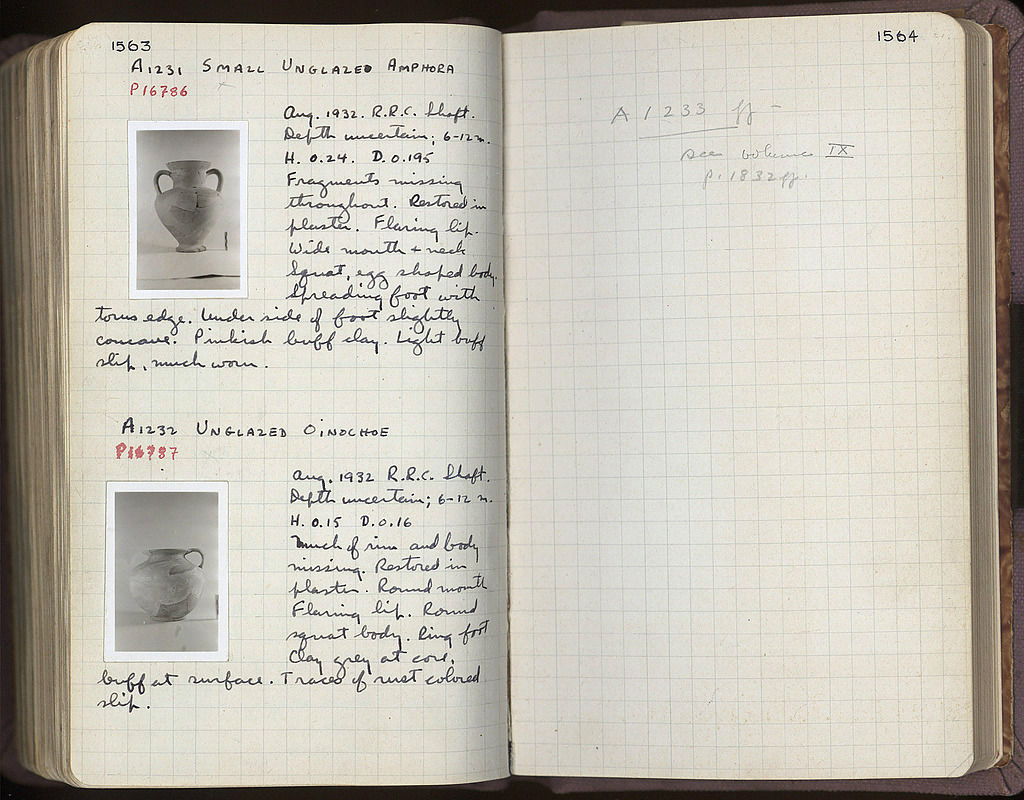 1563
A1231 SMALL UNGLAZED AMPHORA
P16786
Aug. 1932. R.R.C. Shaft.
Depth uncertain; 6-12 m.
H. 0.24. D. 0.195
Fragments missing
throughout. Restored in
plaster. Flaring lip.
Wide mouth + neck
Squat, egg shaped body.
Spreading foot with
torus edge. Under side of foot slightly
concave. Pinkish buff clay. Light buff
slip, much worn.
A1232 UNGLAZED OINOCHOE
P16787
Aug. 1932 R.R.C. Shaft.
Depth uncertain; 6-12 m.
H. 0.15 D. 0.16
Much of rim and body
missing. Restored in
plaster. Round mouth
Flaring lip. Round
squat body. Ring foot
Clay grey at core,
buff at surface. Traces of rust colored
slip.
1564
A 1233 ff -
see volume IX
p. 1832 ff.